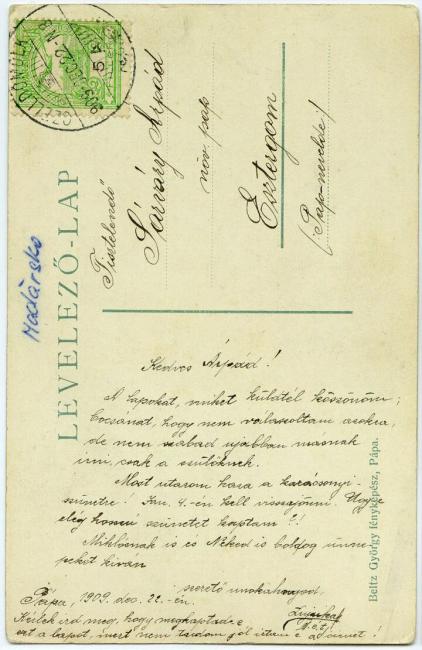 LEVELEZŐ-LAP
Tisztelendő
Sárváry Árpád
növ. pap
Esztergom
(Papnevelde)
Madàrsko
Kedves Árpád!
A lapokat, miket küldtél köszönöm;
bocsánat, hogy nem válaszoltam azokra,
de nem szabad ujabban másnak
irni, csak a szülőknek.
Most utazom haza a karácsonyi-
szünetre! Jan. 4.-én kell visszajönni. Ugye
elég hosszú szünetet kaptam?!
Miklósnak is és Néked is boldog ünne-
peket kiván
szerető unokahugod,
Pápa, 1909. dec. 22.-én.
Kérlek ird meg, hogy megkaptad-e
ezt a lapot, mert nem tudom jól irtam-e a címet!
Beltz György fényképész, Pápa.